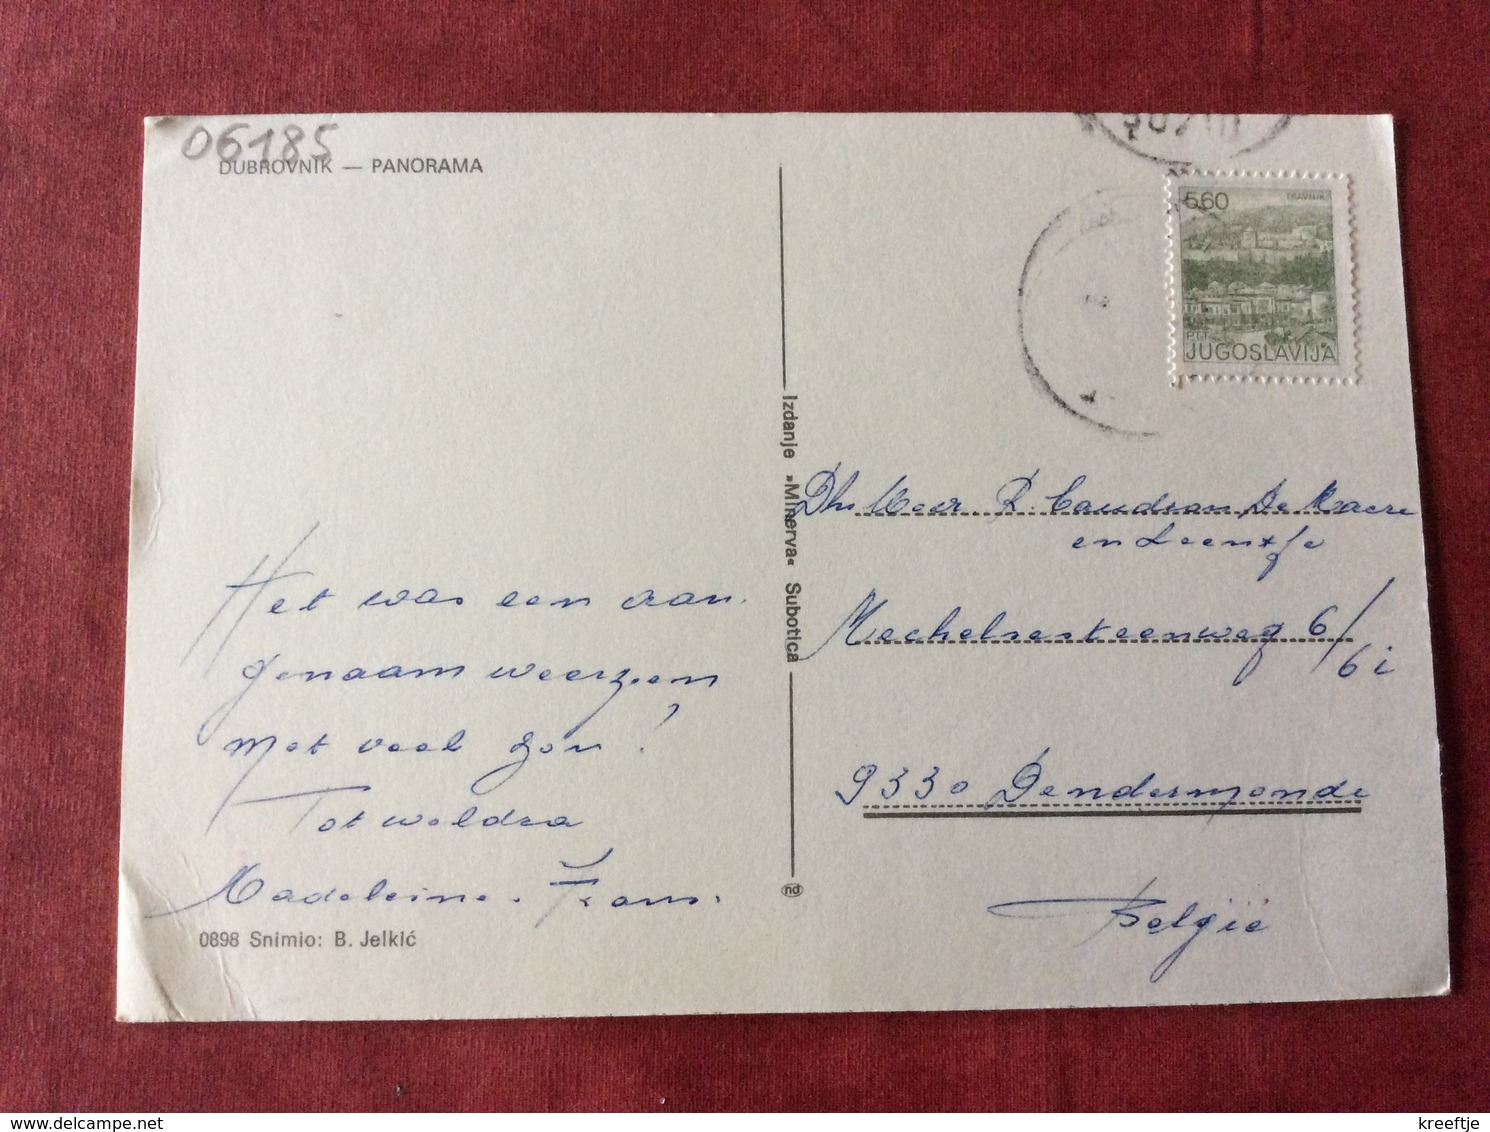 06185
DUBROVNIK — PANORAMA
5.60
TRAVNIK
PTT
JUGOSLAVIJA
Izdanje »Minerva« Subotica
nd
Het was een aan.
genaam weerzien
met veel zon!
Tot weldra
Madeleine. Frans.
0898 Snimio: B. Jelkić
Dhr Mevr. R. De
en Leentje
Mechelsesteenweg 6/
6i
9330 Dendermonde
België
kreeftje